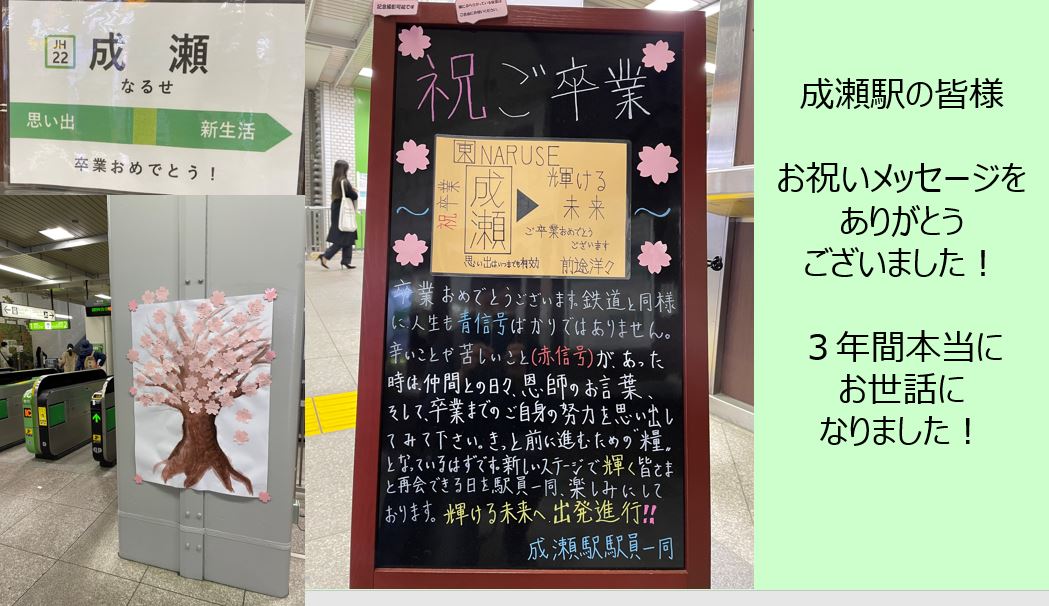 JH
22
成瀬
なるせ
思い出
新生活
卒業おめでとう！
記念撮影可能です
祝ご卒業
東NARUSE
祝卒業
成瀬
輝ける
未来
ご卒業おめでとう
ございます
思い出はいつまでも有効
前途洋々
卒業おめでとうございます。鉄道と同様
に人生も青信号ばかりではありません。
辛いことや苦しいこと(赤信号)が、あった
時は、仲間との日々、恩師のお言葉、
そして、卒業までのご自身の努力を思い出し
てみて下さい。きっと前に進むための“糧”
となっているはずです。新しいステージで輝く皆さま
と再会できる日を駅員一同、楽しみにして
おります。輝ける未来へ出発進行!!
成瀬駅駅員一同
成瀬駅の皆様
お祝いメッセージを
ありがとう
ございました！
３年間本当に
お世話に
なりました！